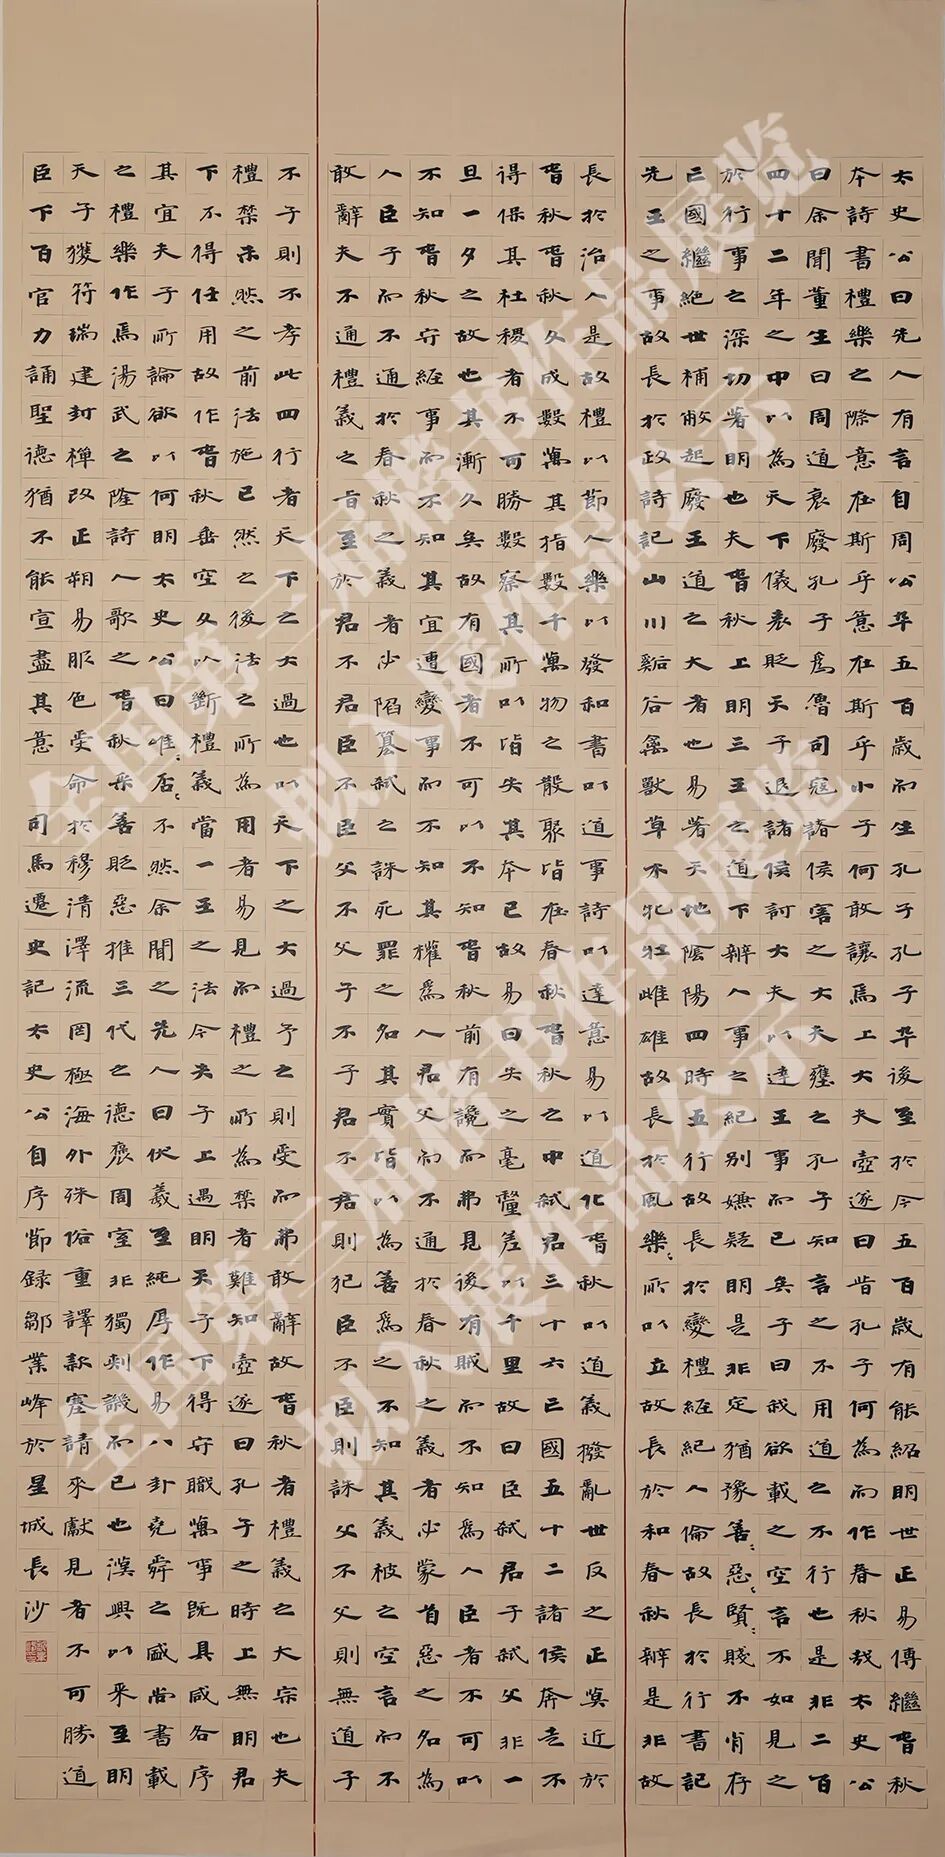 太史公曰先人有言自周公卒五百歲而生孔子孔子卒後至於今五百歲有能紹明世正易傳繼春秋
本詩書禮樂之際意在斯乎意在斯乎小子何敢讓焉上大夫壺遂曰昔孔子何為而作春秋哉太史公
曰余聞董生曰周道衰廢孔子為魯司寇諸侯害之大夫壅之孔子知言之不用道之不行也是非二百
四十二年之中以為天下儀表貶天子退諸侯討大夫以達王事而已矣子曰我欲載之空言不如見之
於行事之深切著明也夫春秋上明三王之道下辨人事之紀別嫌疑明是非定猶豫善〻惡〻賢〻賤不肖存
亡國繼絕世補敝起廢王道之大者也易著天地陰陽四時五行故長於變禮經紀人倫故長於行書記
先王之事故長於政詩記山川谿谷禽獸草木牝牡雌雄故長於風樂〻所以立故長於和春秋辨是非故
長於治人是故禮以節人樂以發和書以道事詩以達意易以道化春秋以道義撥亂世反之正莫近於
春秋春秋文成數萬其指數千萬物之散聚皆在春秋春秋之中弒君三十六亡國五十二諸侯奔走不
得保其社稷者不可勝數察其所以皆失其本已故易曰失之毫釐差以千里故曰臣弒君子弒父非一
旦一夕之故也其漸久矣故有國者不可以不知春秋前有讒而弗見後有賊而不知為人臣者不可以
不知春秋守經事而不知其宜遭變事而不知其權為人君父而不通於春秋之義者必蒙首惡之名為
人臣子而不通於春秋之義者必陷篡弒之誅死罪之名其實皆以為善為之不知其義被之空言而不
敢辭夫不通禮義之旨至於君不君臣不臣父不父子不子君不君則犯臣不臣則誅父不父則無道子
不子則不孝此四行者天下之大過也以天下之大過予之則受而弗敢辭故春秋者禮義之大宗也夫
禮禁未然之前法施已然之後法之所為用者易見而禮之所為禁者難知壺遂曰孔子之時上無明君
下不得任用故作春秋垂空文以斷禮義當一王之法今夫子上遇明天子下得守職萬事既具咸各序
其宜夫子所論欲以何明太史公曰唯〻否〻不然余聞之先人曰伏羲至純厚作易八卦堯舜之盛尚書載
之禮樂作焉湯武之隆詩人歌之春秋采善貶惡推三代之德褒周室非獨刺譏而已也漢興以來至明
天子獲符瑞建封禪改正朔易服色受命於穆清澤流罔極海外殊俗重譯款塞請來獻見者不可勝道
臣下百官力誦聖德猶不能宣盡其意 司馬遷史記太史公自序節録鄒業峰於星城長沙
全国第三届楷书作品展览
拟入展作品公示
全国第三届楷书作品展览
拟入展作品公示